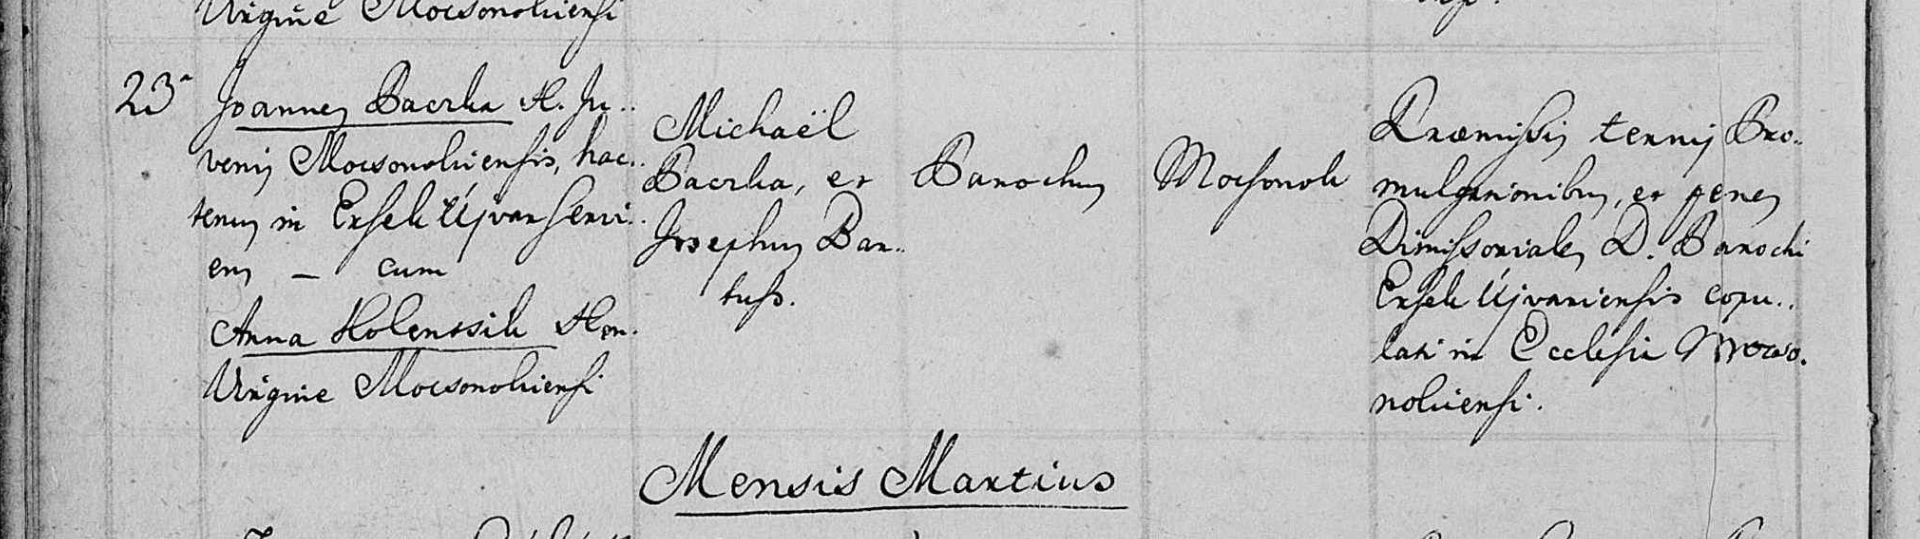 Virgine Mocsonokiensi
23ª Joannes Bacrka H. Ju..
venis Mocsonokiensis, hac..
tenus in Ersek Ujvar servi..
ens — cum
Anna Holentsik Hon.
Virgine Mocsonokiensi
Michaël
Bacrka, et
Josephus Bar..
tuss.
Parochus
Mocsonok
Præmissis ternis Pro..
mulgationibus, et penes
Dimissoriales D. Parochi
Ersek Ujvariensis copu..
lati in Ecclesia Mocso..
nokiensi.
Mensis Martius